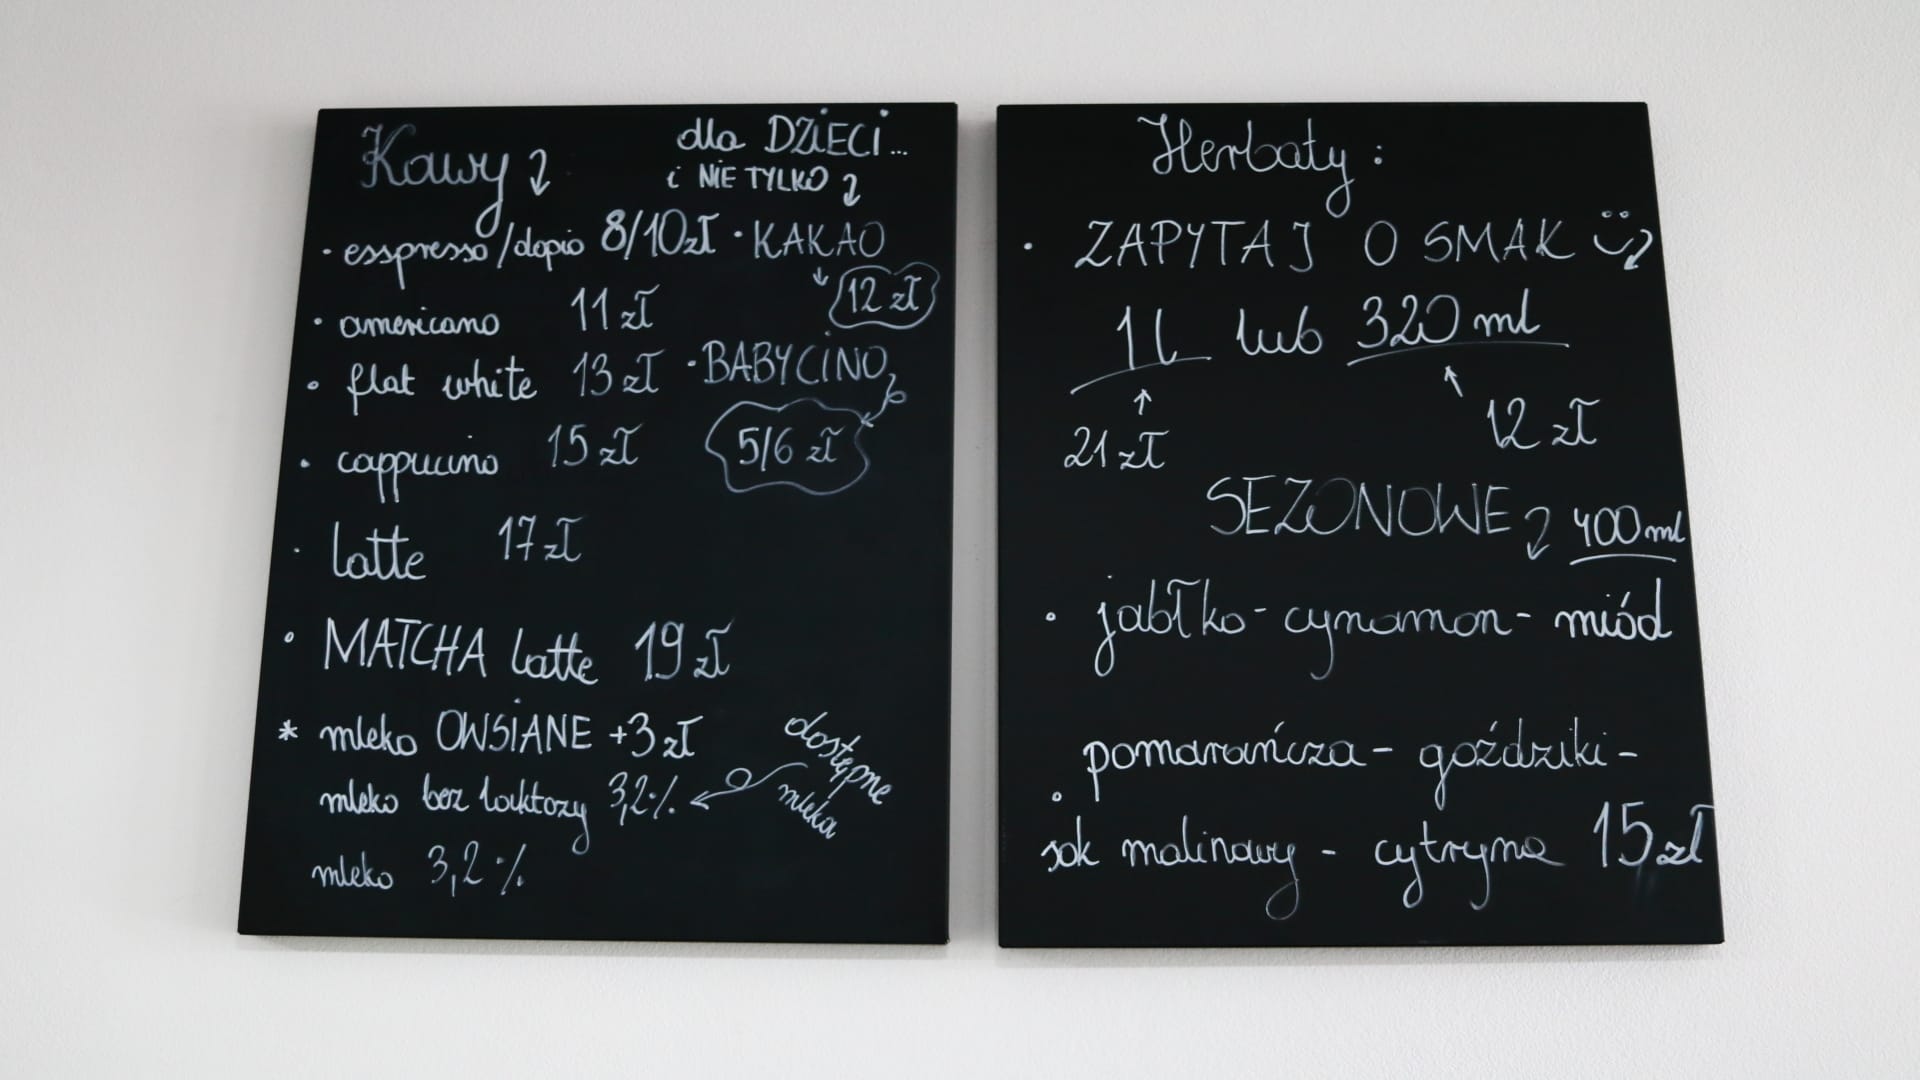 Kawy
dla DZiECi...
i NIE TYLKO
· esspresso/dopio 8/10zł
· KAKAO
12 zł
· americano 11 zł
· flat white 13 zł
· BABYCiNO
5/6 zł
· cappucino 15 zł
· latte 17 zł
· MATCHA latte 19 zł
* mleko OWSiANE +3 zł
mleko bez laktozy 3,2%
mleko 3,2%
dostępne
mleka
Herbaty:
· ZAPYTAJ O SMAK
1l lub 320 ml
21 zł
12 zł
SEZONOWE 400 ml
· jabłko - cynamon - miód
· pomarańcza - goździki -
sok malinowy - cytryna 15 zł